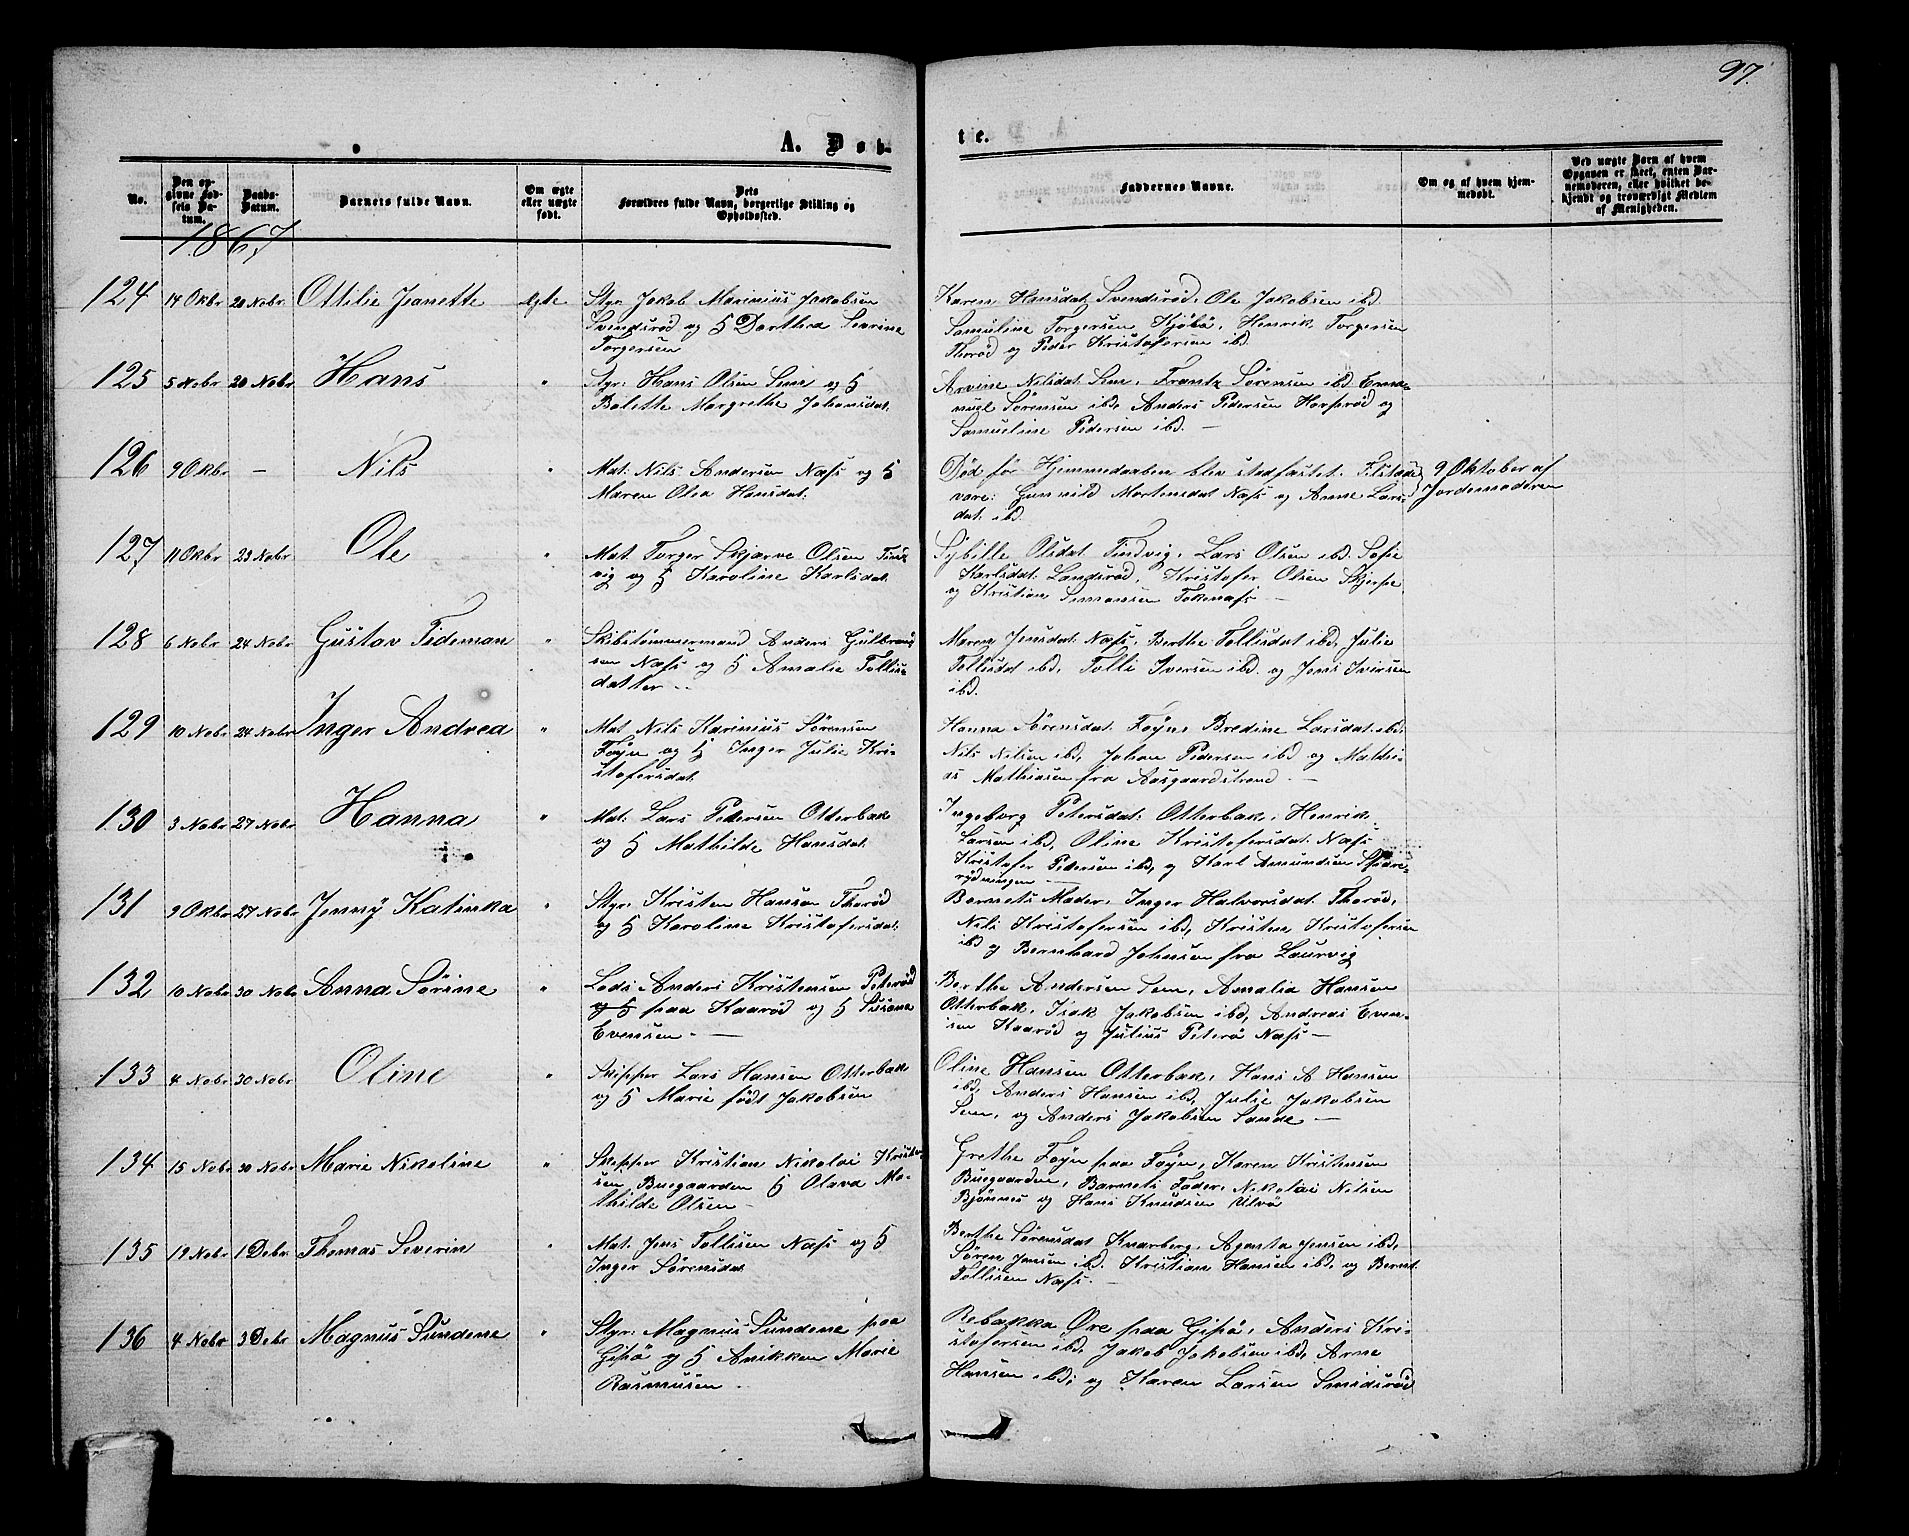 97.
A. Døb-
te.
No.
Den op-
givne Fød-
sels Da-
tum.
Daabs-
Datum.
Barnets fulde Navn.
Om ægte
eller uægte
født.
Dets
Forældres fulde Navn, borgerlige Stilling og
Opholdssted.
Faddernes Navne.
Om og af hvem hjem-
medøbt.
Ved uægte Børn af hvem
Opgaven er skeet, enten Bar-
nemoderen, eller hvilket be-
kjendt og troværdigt Medlem
af Menigheden.
1867
124 14 Okbr 20 Nobr. Ottilie Jeanette ægte Styr. Jakob Marinius Jakobsen
Svendsrød og H Dorthea Severine
Torgersen
Karen Hansdat. Svendsrød, Ole Jakobsen ibd
Samuline Torgersen Kjøbø, Henrik Torgersen
Thorød og Peder Kristofersen ibd.
125 5 Nobr 20 Nobr. Hans " Styr: Hans Olsen Sem og H
Bolette Margrethe Johansdat.
Arvine Nilsdat. Sem, Frantz Sørensen ibd. Ema-
nuel Sørensen ibd, Anders Pedersen Horperød og
Samueline Pedersen ibd. —
126 9 Okbr - Nils " Mat: Nils Andersen Næss og H
Maren Olea Hansdat.
Død før Hjemmedaaben blev stadfæstet. Tilstede
vare: Gunnild Mortensdat Næss og Anne Lars-
dat. ibd.
9 Oktober af
Jordemoderen
127 11 Okbr 23 Nobr Ole " Mat. Torger Skjærve Olsen Tind
vig og H Karoline Karlsdat.
Sybille Olsdat Tindvig, Lars Olsen ibd. Sofie
Karlsdat. Landsrød, Kristofer Olsen Skjerpe
og Kristian Simonsen Tokenæss —
128 6 Nobr 24 Nobr Gustav Tideman " Skibstømmermand Anders Gulbrand
sen Næss og H Amalie Tollis-
datter -
Maren Jensdat. Næss, Berthe Tollisdat ibd, Julie
Tollisdat ibd, Tolli Iversen ibd. og Jens Iversen
ibd.
129 10 Nobr 24 Nobr Inger Andrea " Mat Nils Karinius Sørensen
Føyn og H Inger Julie Kri-
stofersdat.
Hanna Sørensdat. Føyn, Bredine Larsdat. ibd,
Nils Nilsen ibd, Johan Pedersen ibd og Mathi-
as Mathiasen fra Aasgaardstrand —
130 3 Nobr 27 Nobr Hanna " Mat: Lars Pedersen Otterbæk
og H Mathilde Hansdat.
Ingeborg Petersdat. Otterbæk, Henrik
Larsen ibd, Oline Kristofersdat. Næss
Kristofer Pedersen ibd, og Karl Amundsen Snare-
rydningen —
131 9 Okbr 27 Nobr Jenny Katinka " Styr. Kristen Hansen Thorød
og H Karoline Kristofersdat.
Barnets Moder, Inger Halvorsdat. Thorød,
Nils Kristofersen ibd, Kristen Kristofersen
ibd og Bernhard Johnsen fra Laurvig
132 10 Nobr 30 Nobr Anna Sørine " Lods Anders Kristensen Peterød
og H paa Kaarød og H Susanna
Evensen -
Berthe Andersen Sem, Amalia Hansen
Otterbæk, Isak Jakobsen ibd, Andreas Even-
sen Kaarød og Julius Peterø Næss —
133 4 Nobr 30 Nobr Oline " Skipper Lars Hansen Otterbæk
og H Marie født Jakobsen
Oline Hansen Otterbæk, Hans A Hansen
ibd, Anders Hansen ibd, Julie Jakobsen
Sem, og Anders Jakobsen Sande —
134 15 Nobr 30 Nobr Marie Nikoline " Skipper Kristian Nikolai Kristen
sen Buegaarden H Olava Ma-
thilde Olsen -
Grethe Føyn paa Føyn, Karen Kristensen
Buegaarden, Barnets Fader, Nikolai Nilsen
Bjønnes og Hans Knudsen Ulvø
135 19 Nobr 1 Debr. Thomas Severin " Mat. Jens Tollisen Næss og H
Inger Sørensdat.
Berthe Sørensdat Knarberg, Agusta Jensen ibd,
Søren Jensen ibd. Kristian Hansen ibd, og Bernt
Tollisen Næss. —
136 4 Nobr 3 Debr Magnus Sundene " Styr: Magnus Sundene paa
Gipø og H Anikken Marie
Rasmusen -
Rebækka Øre paa Gipø, Anders Kri-
stofersen ibd, Jakob Jakobsen ibd, Arne
Hansen ibd; og Karen Larsen Smidsrød